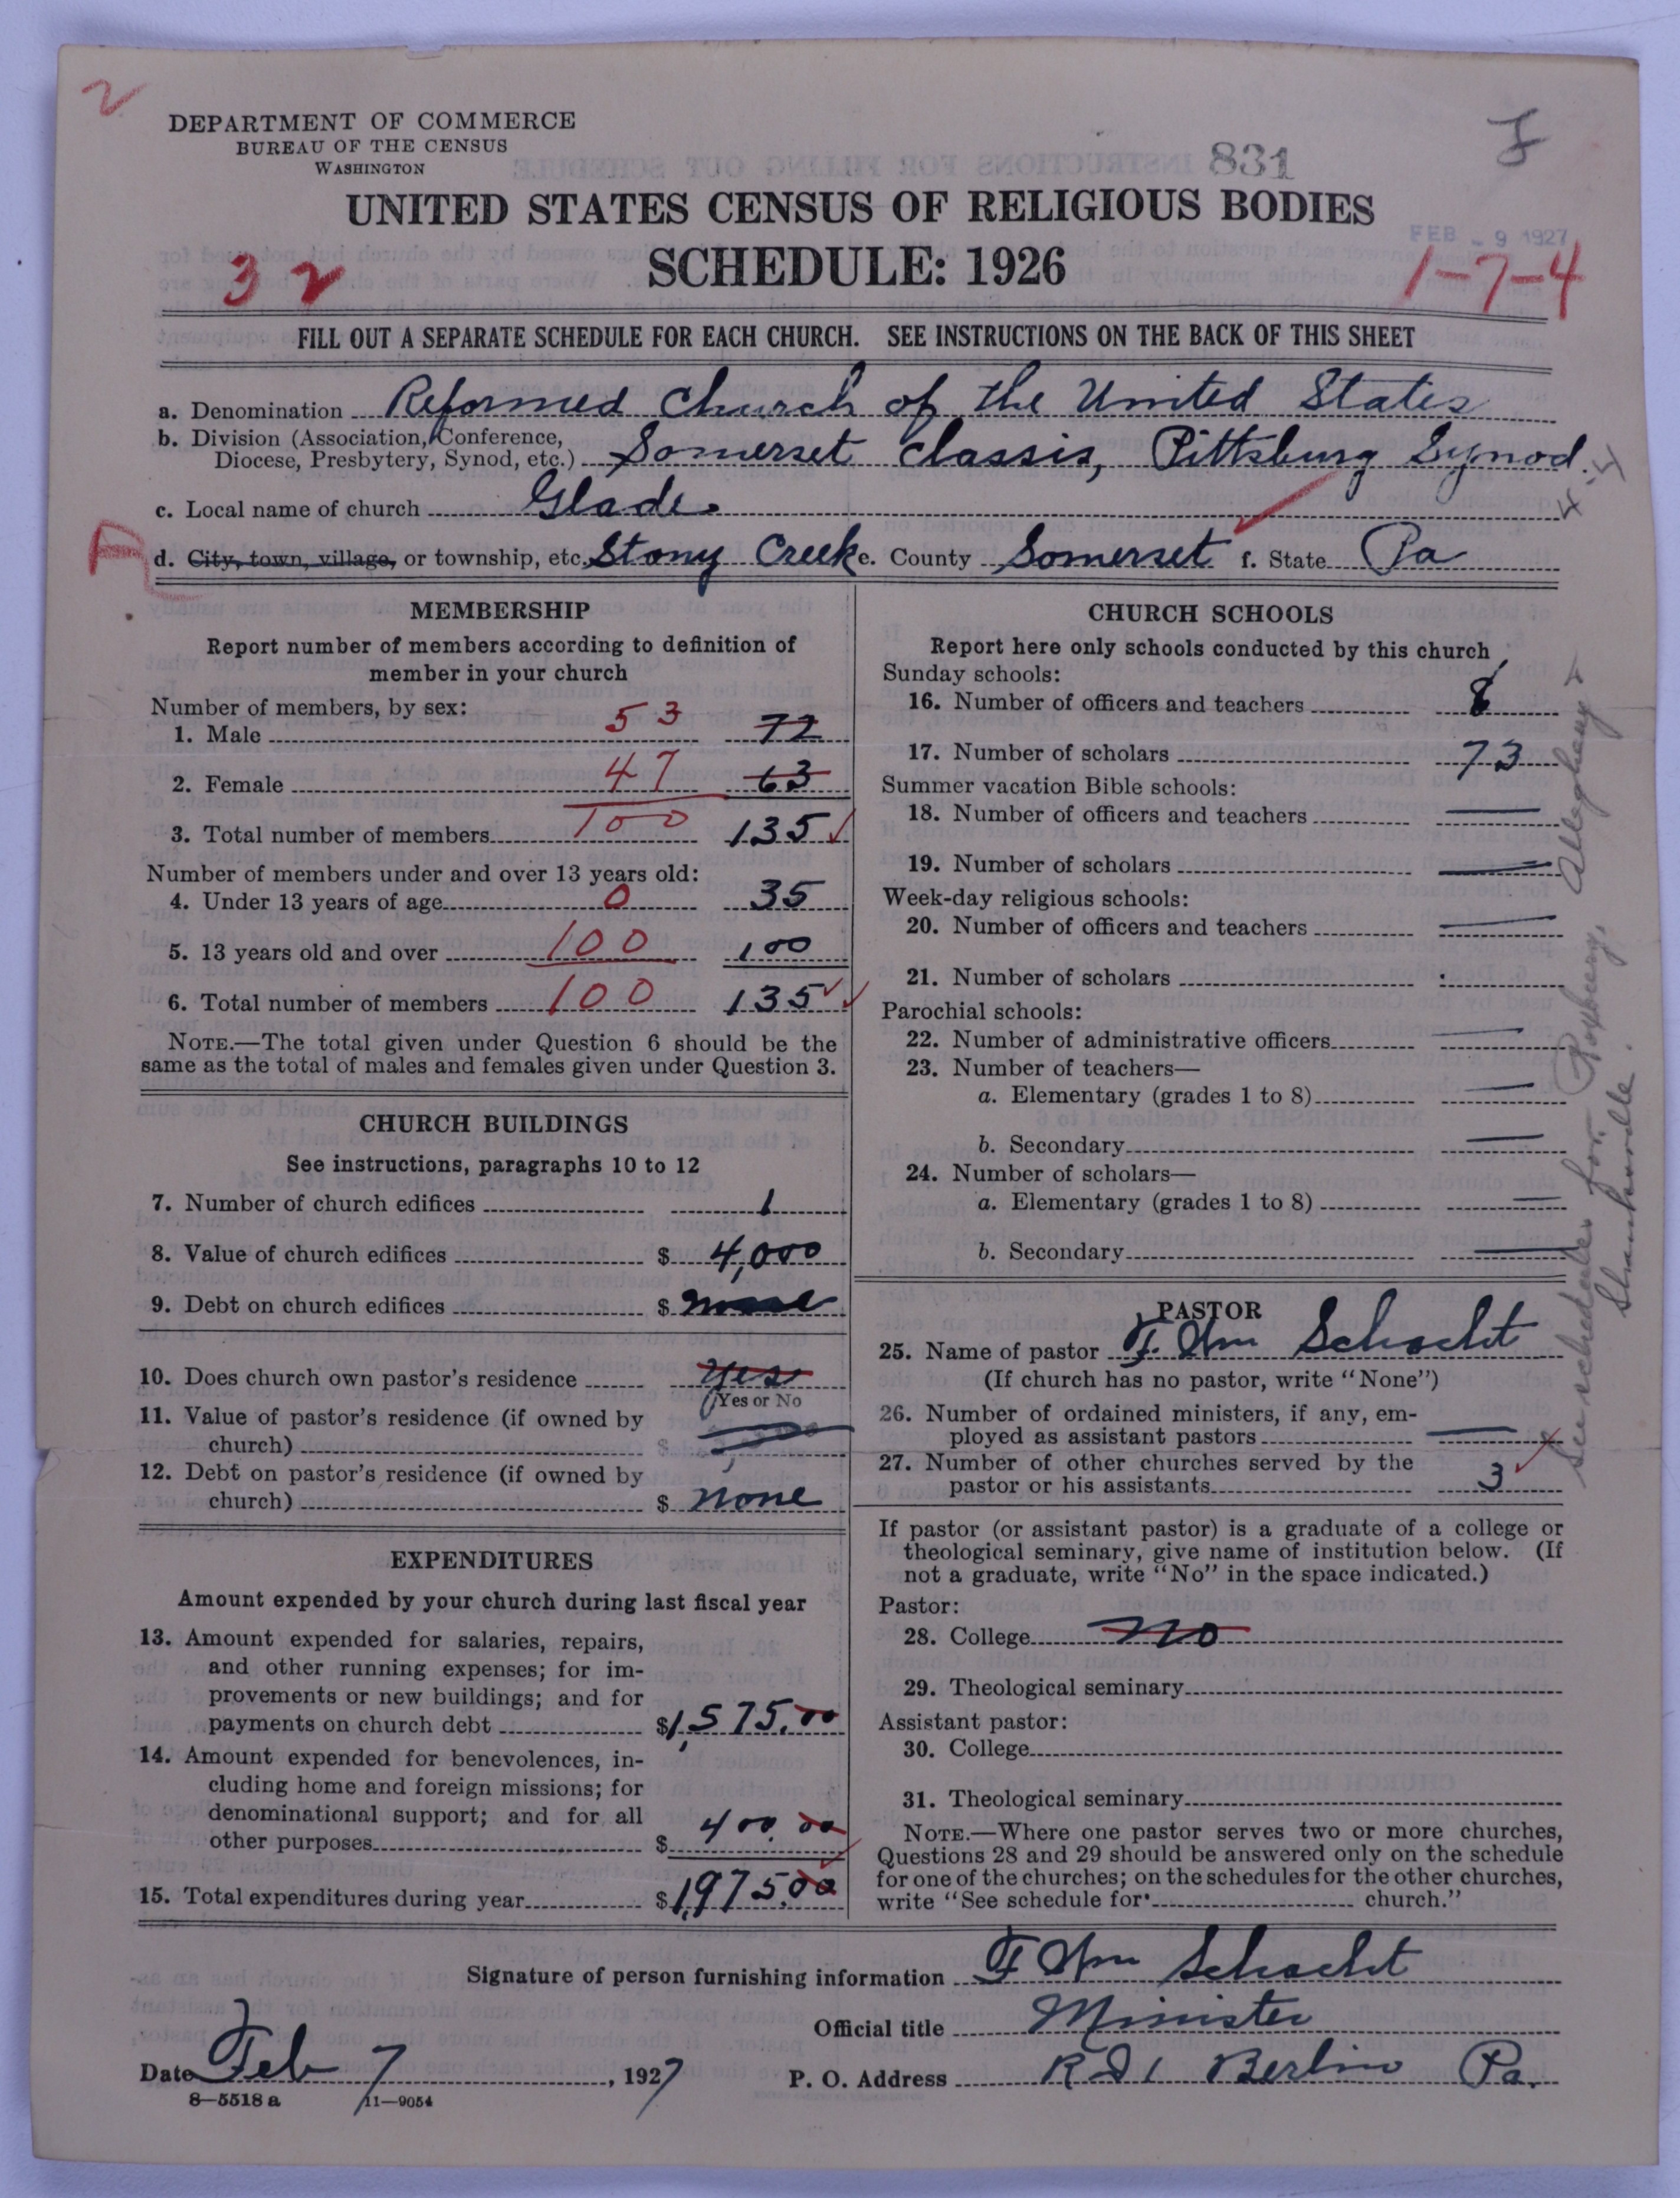 2
DEPARTMENT OF COMMERCE
BUREAU OF THE CENSUS
WASHINGTON
831
UNITED STATES CENSUS OF RELIGIOUS BODIES
FEB - 9 1927
SCHEDULE: 1926
3 2
1-7-4
FILL OUT A SEPARATE SCHEDULE FOR EACH CHURCH. SEE INSTRUCTIONS ON THE BACK OF THIS SHEET
a. Denomination Reformed Church of the United States
b. Division (Association, Conference, Diocese, Presbytery, Synod, etc.) Somerset Classis, Pittsburg Synod.
c. Local name of church Glade
A
d. City, town, village, or township, etc. Stony Creek e. County Somerset f. State Pa
MEMBERSHIP
Report number of members according to definition of
member in your church
Number of members, by sex:
1. Male 53 72
2. Female 47 63
3. Total number of members 100 135
Number of members under and over 13 years old:
4. Under 13 years of age 0 35
5. 13 years old and over 100 100
6. Total number of members 100 135
NOTE.—The total given under Question 6 should be the
same as the total of males and females given under Question 3.
CHURCH BUILDINGS
See instructions, paragraphs 10 to 12
7. Number of church edifices 1
8. Value of church edifices $ 4,000
9. Debt on church edifices $ none
10. Does church own pastor's residence yes
(Yes or No
11. Value of pastor's residence (if owned by
church) $
12. Debt on pastor's residence (if owned by
church) $ none
EXPENDITURES
Amount expended by your church during last fiscal year
13. Amount expended for salaries, repairs,
and other running expenses; for im-
provements or new buildings; and for
payments on church debt $1,575.00
14. Amount expended for benevolences, in-
cluding home and foreign missions; for
denominational support; and for all
other purposes $ 400.00
15. Total expenditures during year $1,975.00
CHURCH SCHOOLS
Report here only schools conducted by this church
Sunday schools:
16. Number of officers and teachers 8
17. Number of scholars 73
Summer vacation Bible schools:
18. Number of officers and teachers
19. Number of scholars
Week-day religious schools:
20. Number of officers and teachers
21. Number of scholars
Parochial schools:
22. Number of administrative officers
23. Number of teachers—
a. Elementary (grades 1 to 8)
b. Secondary
24. Number of scholars—
a. Elementary (grades 1 to 8)
b. Secondary
PASTOR
25. Name of pastor F. Wm Schacht
(If church has no pastor, write "None")
26. Number of ordained ministers, if any, em-
ployed as assistant pastors
27. Number of other churches served by the
pastor or his assistants 3
If pastor (or assistant pastor) is a graduate of a college or
theological seminary, give name of institution below. (If
not a graduate, write "No" in the space indicated.)
Pastor:
28. College no
29. Theological seminary
Assistant pastor:
30. College
31. Theological seminary
NOTE.—Where one pastor serves two or more churches,
Questions 28 and 29 should be answered only on the schedule
for one of the churches; on the schedules for the other churches,
write "See schedule for church."
See schedules for Roxbury, Allegheny &
Shanksville.
Signature of person furnishing information F Wm Schacht
Official title Minister
Date Feb 7, 1927
P. O. Address R D 1 Berlin Pa.
8—5518 a 11—9054